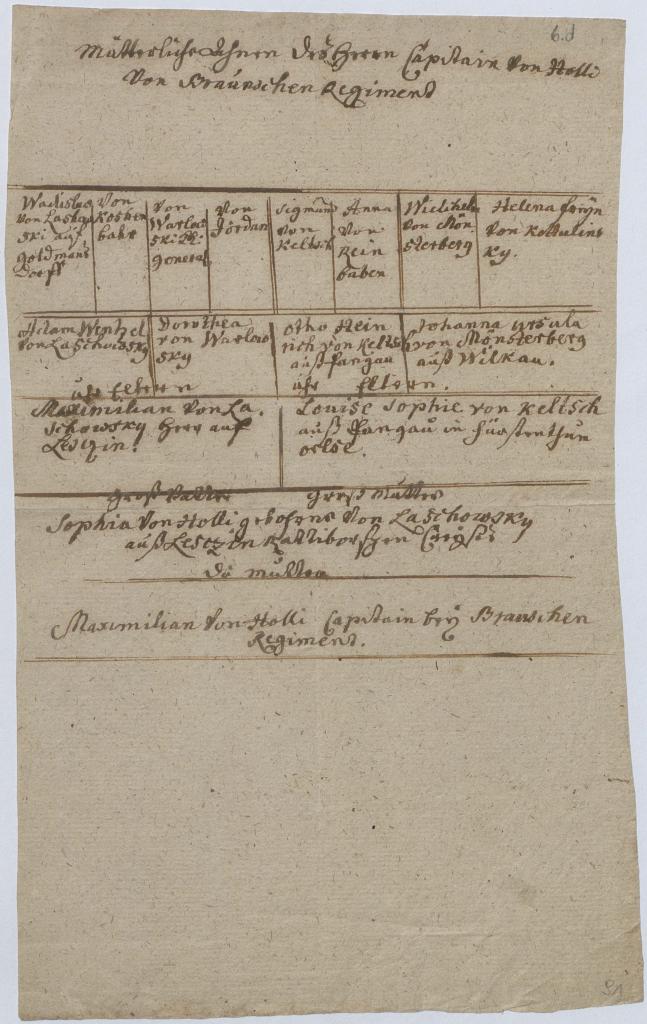 6.d
Mütterliche Ahnen des Herrn Capitain von Holli
von Braunschen Regiment
Wadislas von Laschowski auf Goldmansdorff
von Koschenbahr
von Warlowski
von Jordan
Sigmund von Keltsch
Anna von Reinbaben
von Mönsterberg
Helena von Kottulinsky.
Adam Wentzel von Laschowsky
Dorothea von Warlowsky
Otho Heinrich von Keltsch auß Pangau
Johanna Ursula von Mönsterberg auß Wilkau.
uhr Eltern
uhr Eltern.
Maximilian von Laschowsky Herr auf Lesczin.
Louise Sophie von Keltsch
auß Pangau in Fürstenthum
Oelse.
Groß Vatter
Groß Mutter
Sophia von Holli gebohrne von Laschowsky
auß Lesczin Rattiborschen
die Mutter
Maximilian von Holli Capitain bey Braunschen
Regiment.